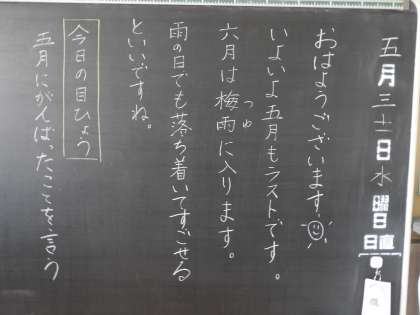 五月三十一日水曜日
日直
おはようございます。
いよいよ五月もラストです。
六月は梅雨に入ります。
つゆ
雨の日でも落ち着いてすごせる
といいですね。
今日の目ひょう
五月にがんばったことを言う